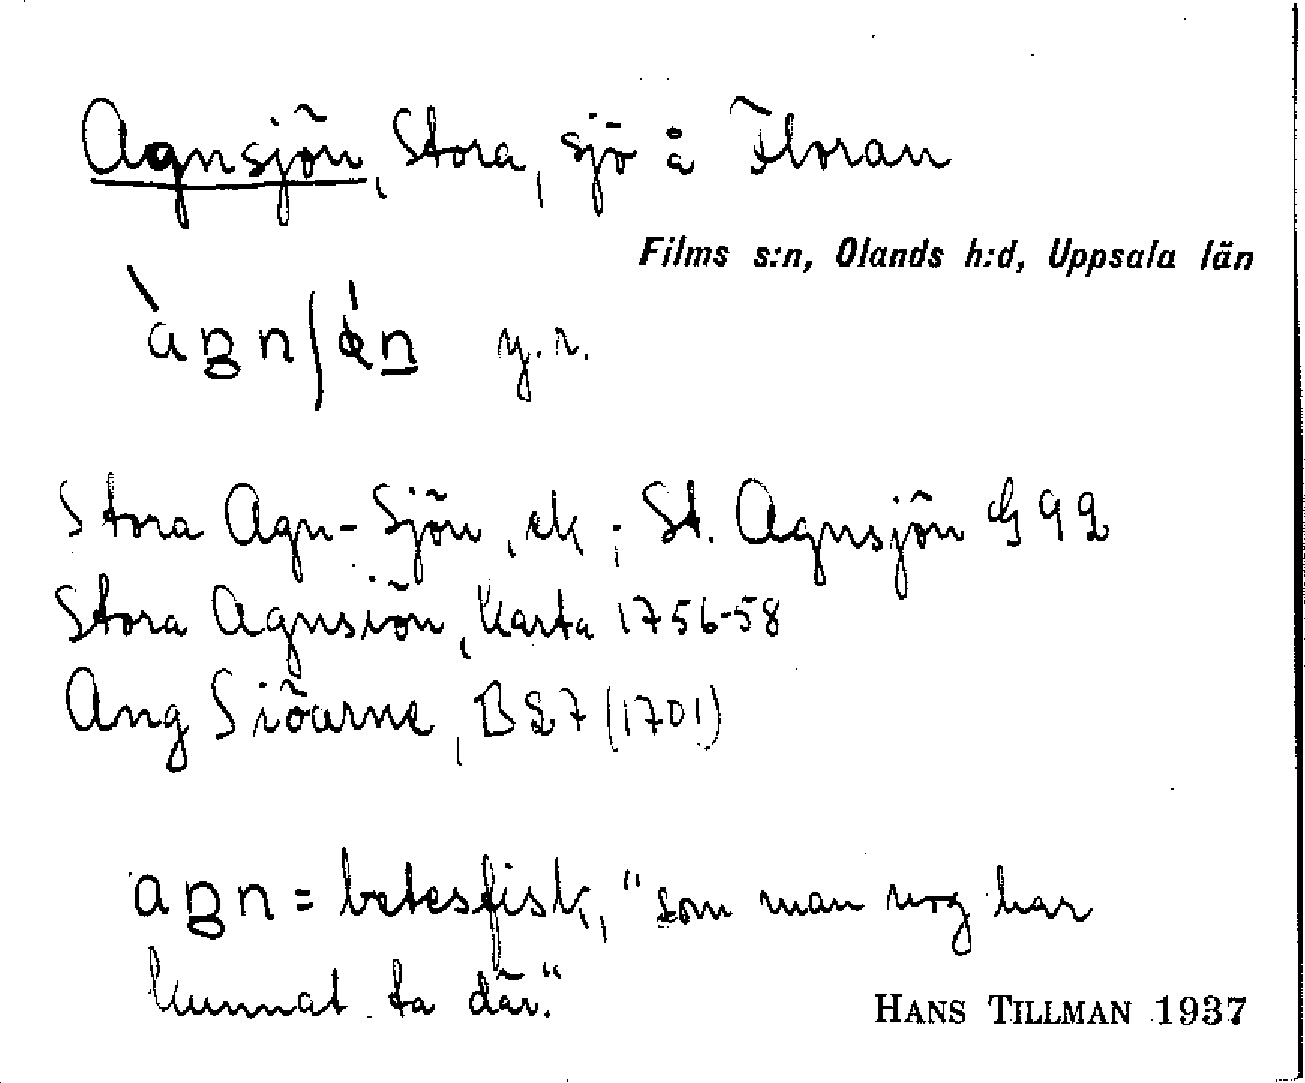 Agnsjön, Stora, sjö å Floran
Films s:n, Olands h:d, Uppsala län
y.r.
Stora Agn-Sjön, ek; St. Agnsjön G 92
Stora Agnsiön, Karta 1756-58
Ang Siöarne, B 27 (1701)
aŋn = betesfisk, "som man nog har
kunnat ta där."
HANS TILLMAN 1937